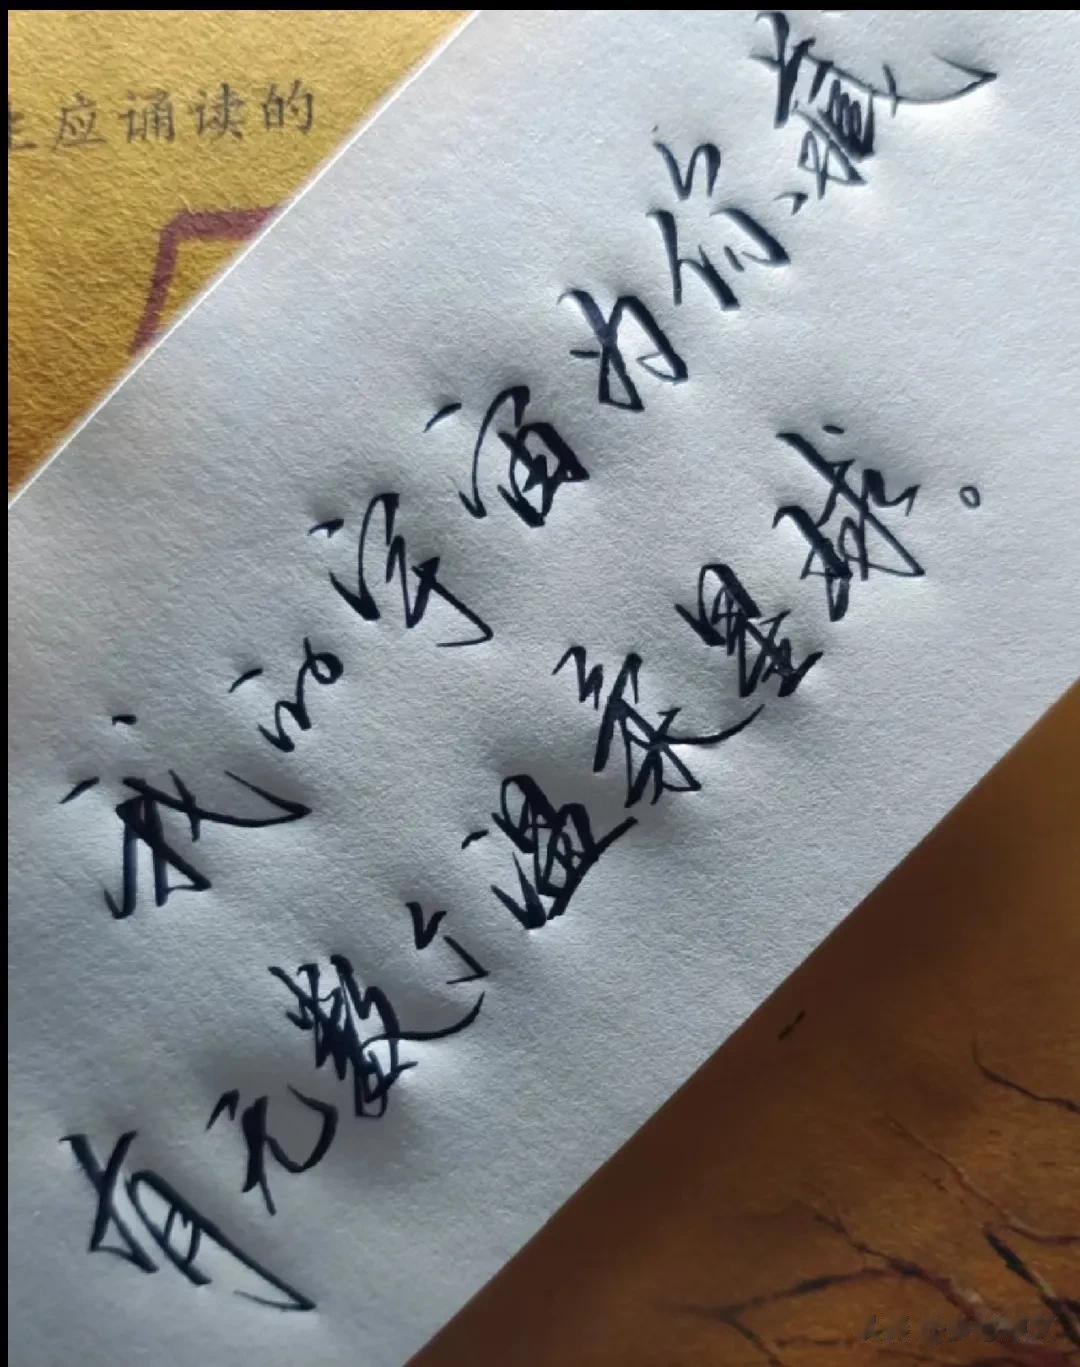 应诵读的
我的宇宙为你藏
有无数个温柔星球。